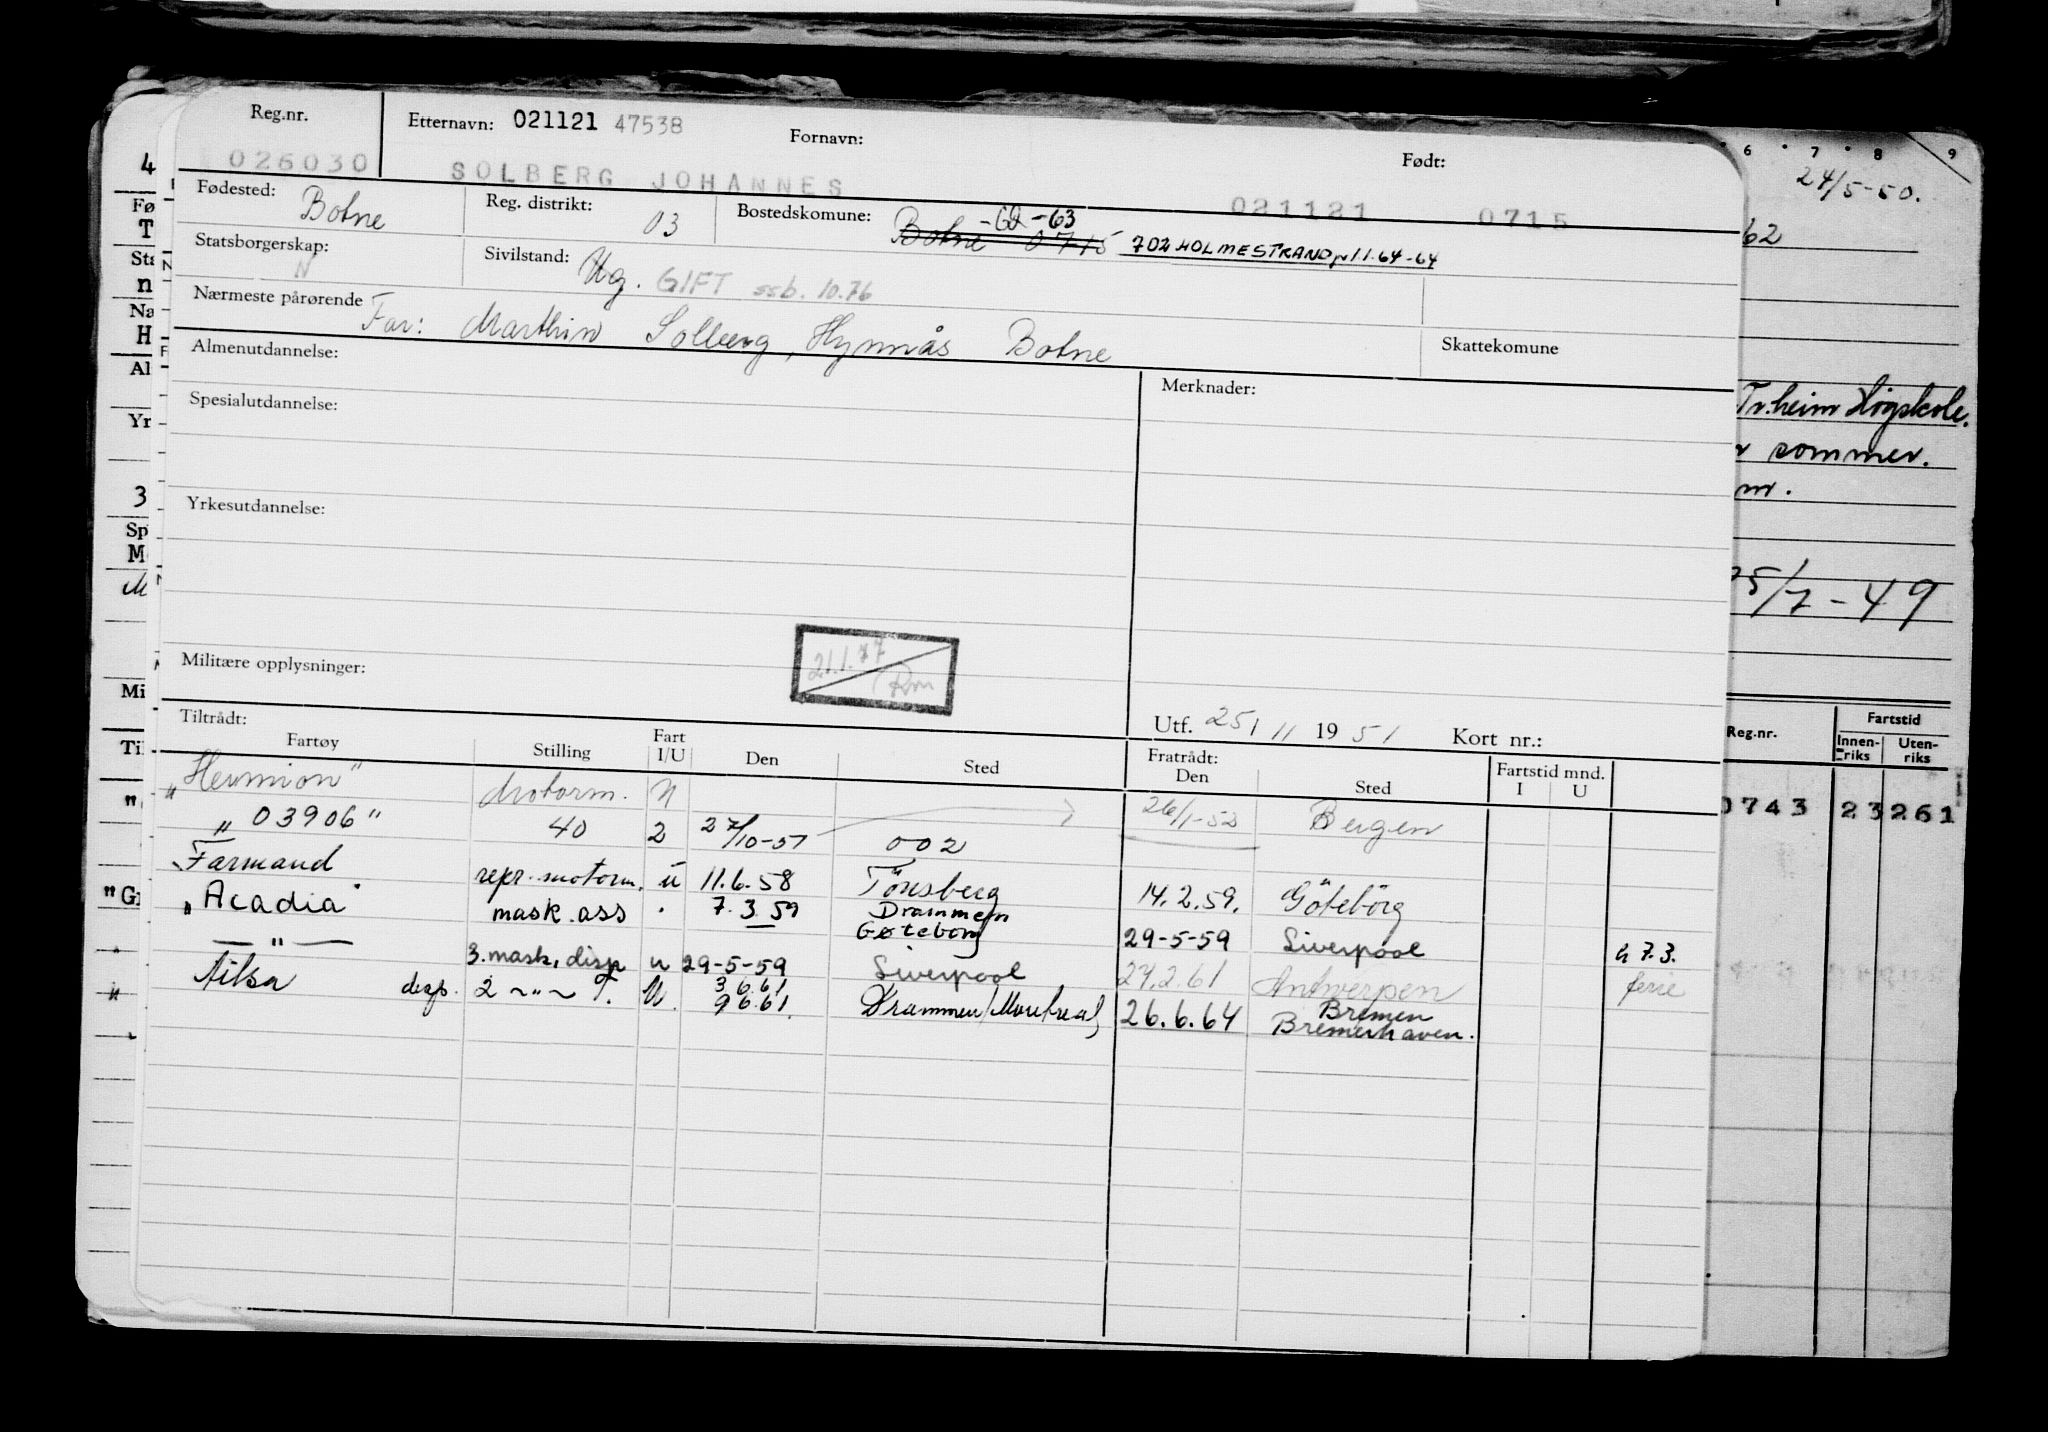 Reg.nr. Etternavn: 021121 47538 Fornavn: Født:
026030 SOLBERG JOHANNES 021121 0715
Fødested: Botne Reg. distrikt: 03 Bostedskomune: Botne 0715 -62-63 702 HOLMESTRAND pr 1.1.64-64
Statsborgerskap: N Sivilstand: Ug. GIFT ssb. 10.76
Nærmeste pårørende Far: Marthin Solberg, Hynnås Botne
Almenutdannelse: Skattekomune
Merknader:
Spesialutdannelse:
Yrkesutdannelse:
21.1.77
Militære opplysninger:
Utf. 25/11 1951 Kort nr.:
Tiltrådt: Fratrådt: Fartstid mnd.
Fartøy Stilling Fart I/U Den Sted Den Sted I U
"Hermion" Motorm. N 26/1-52 Bergen
" 03906 " 40 2 27/10-51 002
Farmand repr. motorm. u 11.6.58 Tönsberg 14.2.59. Göteborg
"Acadia" mask. ass " 7.3.59 Drammen Gøteborg 29-5-59 Liverpool h 7.3.
— " — 3. mask, disp u 29-5-59 Liverpool 27.2.61 Antwerpen ferie
" Ailsa disp. 2 ~"~ T. U. 3.6.61 9.6.61. Drammen/Montreal 26.6.64 Bremen Bremerhaven.
6 7 8 9
24/5-50.
62
Tr.heim Högskole.
sommer.
25/7-49
Reg.nr. Fartstid
Innenriks Utenriks
0743 23 261
4
Fø
T
Sta
n
Na
H
Al
Yr
3
Sp
M
Mi
Til
"G